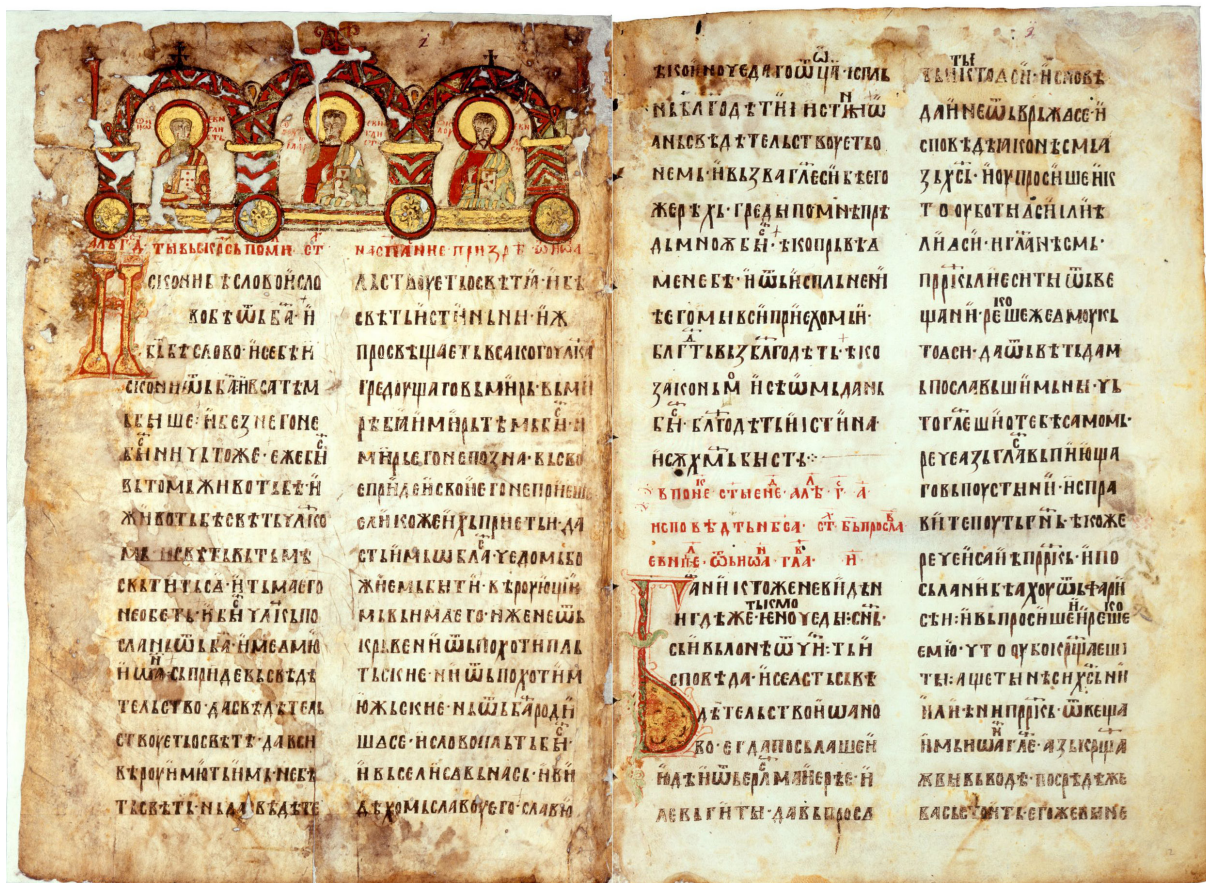 тывьскрсьпоми · ст
искониБѢсловоисло
вобѣѿьба·и
бьбѣслово·исебѣи
скониѿьбаивсатѣм
ьбыше:ибезнегоне
быничьтоже·ежебы
втомьживотьбѣи
животьбѣсвѣтьчлко
мь·исвѣтьвьтьмѣ
свьтитьса·итьмаего
необеть·ибычлкьпо
сланьѿьба·имеѣмю
иѡа·сьпридевьсвѣдѣ
тельство·дасвѣдѣтель
ствоуетьосвѣтѣ·давси
вѣроуимютьимь·небѣ
тьсвѣть·ньдасвѣдѣте
льствоуетьосвѣтѣ·ибѣ
свѣтьистиньни·иж
просвѣщаетьвсакогочлка
гредоущаговьмирь·вьми
рѣбѣимирьтѣмьбы·и
мирьегонепозна·вьсво
епридеисвоиегонепоиеше
еликожеихьприетьи·да
стьимьѡбла·чедомьбо
жиемьбыти·вѣроующи
мьвьимаего·иженеѿь
крьвениѿьпохотипль
тьские·ниѿьпохотим
южьские·ньѿьбароди
шасе·исловопльтьбы·
ивьселисавьнась·иви
дѣхомьславоуего·славю
ѣкоиночедагоѿца·испль
ньблгодѣтиистинѡ
аньсвѣдѣтельствоуетьо
немь·ивьзвагле·сибѣего
жерѣхь·гредыпомнѣпрѣ
дьмножбы·ѣкопрьвѣд
менебѣ·иѿьисплнени
ѣегомывсиприехомьи·
блгтьвьзблгодѣть·ѣко
законьмоисѣѡмьдань
бы·блгодѣтьиистина·
исхмьбысть:
впонестыенеалѣгꙗ
исповѣдтьнбса·стбьпросла
евниеѿиѡагла
ьаниистоженевидѣн
тькмо
игдѣже·иночедыснь·
сьивьлонѣѿчи:тьи
споведа·исеастьсвѣ
дѣтельствоиѡано
во·егдапослашеи
юдѣиѿьерлмаиерѣе·и
левьгити·давьпроса
ты
ьитыктоеси·исповѣ
даинеѿьврьжесе·и
сповѣдаѣконесмьа
зьхсь·ивьпросишеик
тооуботыесиилиѣ
лиꙗеси·иглнѣсмь·
пррксьлиеситыѿьве
щани·рѣшежеѥмоукь
тоеси·даѿьвѣтьдам
ьпославьшимьны·чь
тоглешиотебѣсамомь·
речеазьглавьпиюща
говьпоустыни·испра
витепоутьгнь·ѣкоже
речеисаиѣпррксь·ипо
сьланибѣахоуѿьфари
сѣи·ивьпросишеирѣше
емю·чтооубокрщаеши
ты:ащетынѣсихсьни
илиѣнипррксь·ѿвеща
имьиѡагле·азькрща
ювывьводѣ·посрѣдѣже
васьстоить·егожевыне